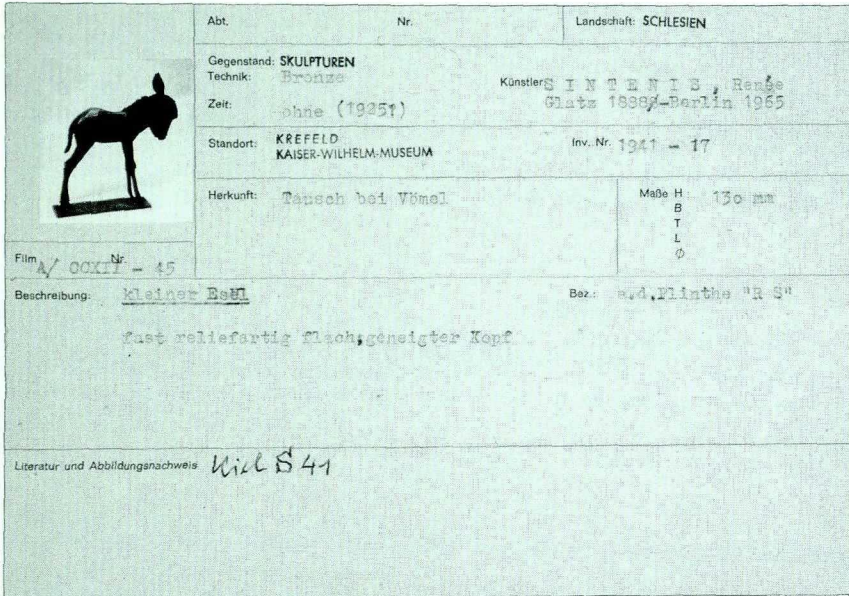 Abt. Nr. Landschaft: SCHLESIEN
Gegenstand: SKULPTUREN
Technik: Bronze
Künstler: S I N T E N I S , Renée
Glatz 1888-Berlin 1965
Zeit: ohne (1925?)
Standort: KREFELD
KAISER-WILHELM-MUSEUM
Inv. Nr. 1941 - 17
Herkunft: Tausch bei Vömel
Maße H 130 mm
B
T
L
Ø
Film Nr.
A/ CCXII - 45
Beschreibung: kleiner Esel
Bez.: a.d.Plinthe "R S"
fast reliefartig flach;geneigter Kopf
Literatur und Abbildungsnachweis S 41